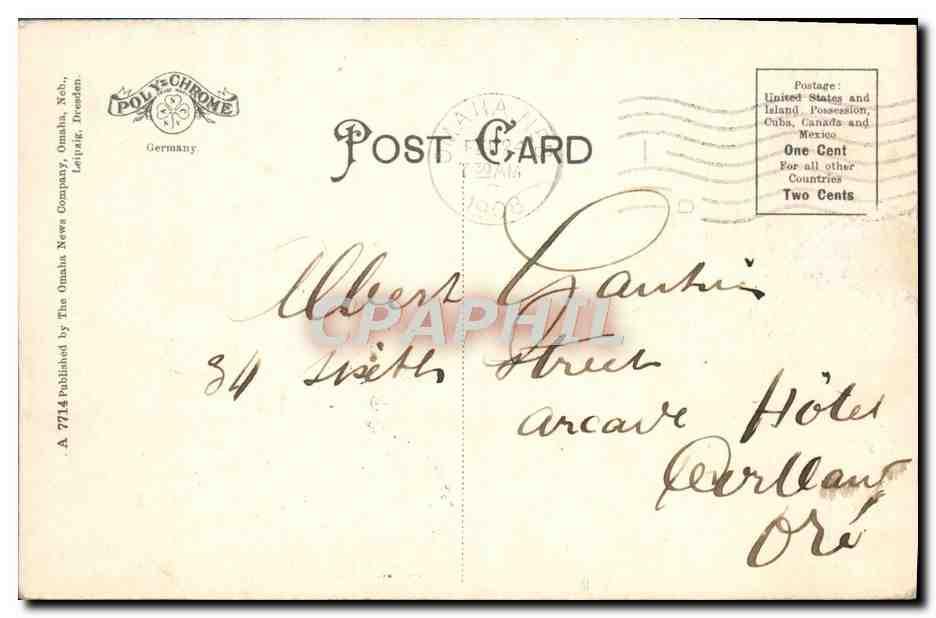 A 7714 Published by The Omaha News Company, Omaha, Neb.,
Leipzig, Dresden.
POLY=CHROME
Germany.
POST CARD
OMAHA
AM
1908
Postage:
United States and
Island, Possession,
Cuba, Canada and
Mexico
One Cent
For all other
Countries
Two Cents
Albert
CPAPHIL
34 sixth Street
arcade Hôtel
Oré